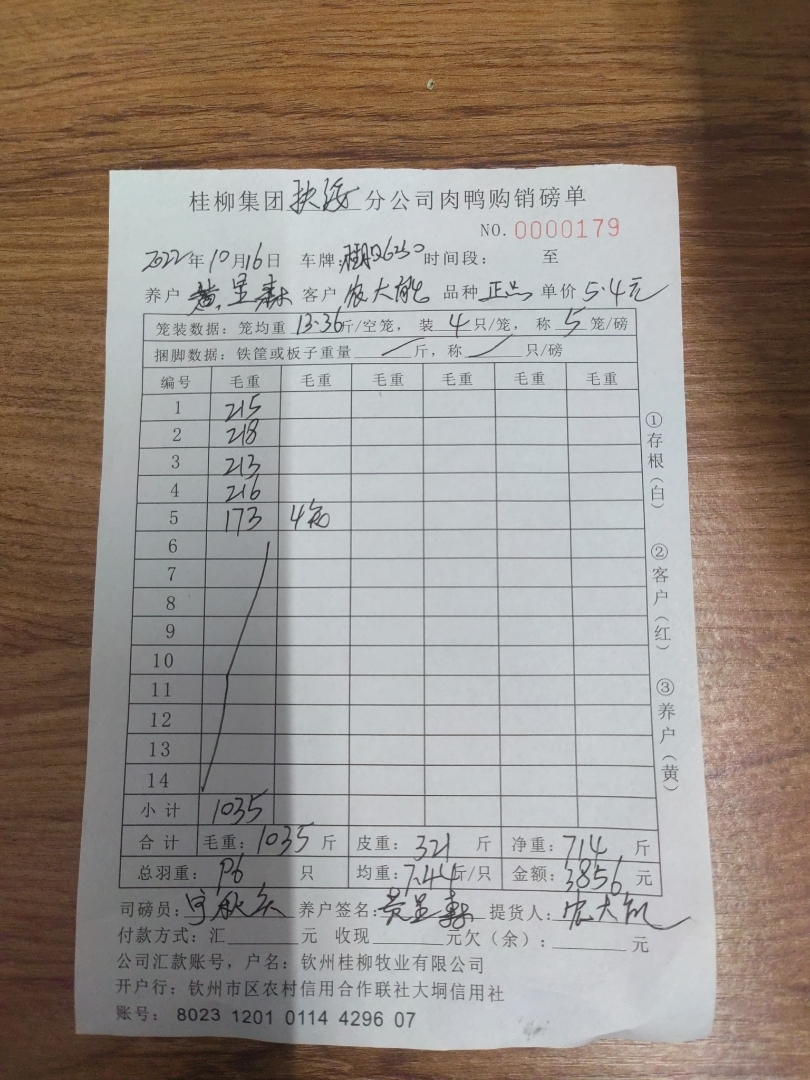 桂柳集团扶绥分公司肉鸭购销磅单
NO. 0000179
2022年10月16日 车牌: 时间段: 至
养户 黄呈森 客户 农大 品种 正 单价 5.4元
笼装数据:笼均重 13.36斤/空笼,装 4只/笼,称 5 笼/磅
捆脚数据:铁筐或板子重量 / 斤,称 / 只/磅
编号 毛重 毛重 毛重 毛重 毛重 毛重
1 215
2 218
3 213
4 216
5 173 4
6
7
8
9
10
11
12
13
14
小计 1035
合计 毛重:1035 斤 皮重:321 斤 净重:714 斤
总羽重:96 只 均重:7.44斤/只 金额:3856 元
司磅员: 养户签名:黄呈森 提货人:农大
付款方式:汇 元 收现 元欠(余): 元
公司汇款账号,户名:钦州桂柳牧业有限公司
开户行:钦州市区农村信用合作联社大垌信用社
账号:8023 1201 0114 4296 07
①存根(白) ②客户(红) ③养户(黄)